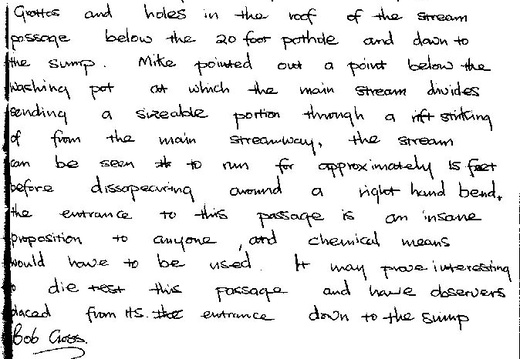 Grottos and holes in the roof of the stream
passage below the 20 foot pothole and down to
the sump. Mike pointed out a point below the
washing pot at which the main stream divides
sending a sizeable portion through a rift striking
of from the main streamway, the stream
can be seen to run for approximately 15 feet
before dissapearing around a right hand bend.
the entrance to this passage is an insane
proposition to anyone, and chemical means
would have to be used. It may prove interesting
to die test this passage and have observers
placed from its entrance down to the sump
Bob Cross.